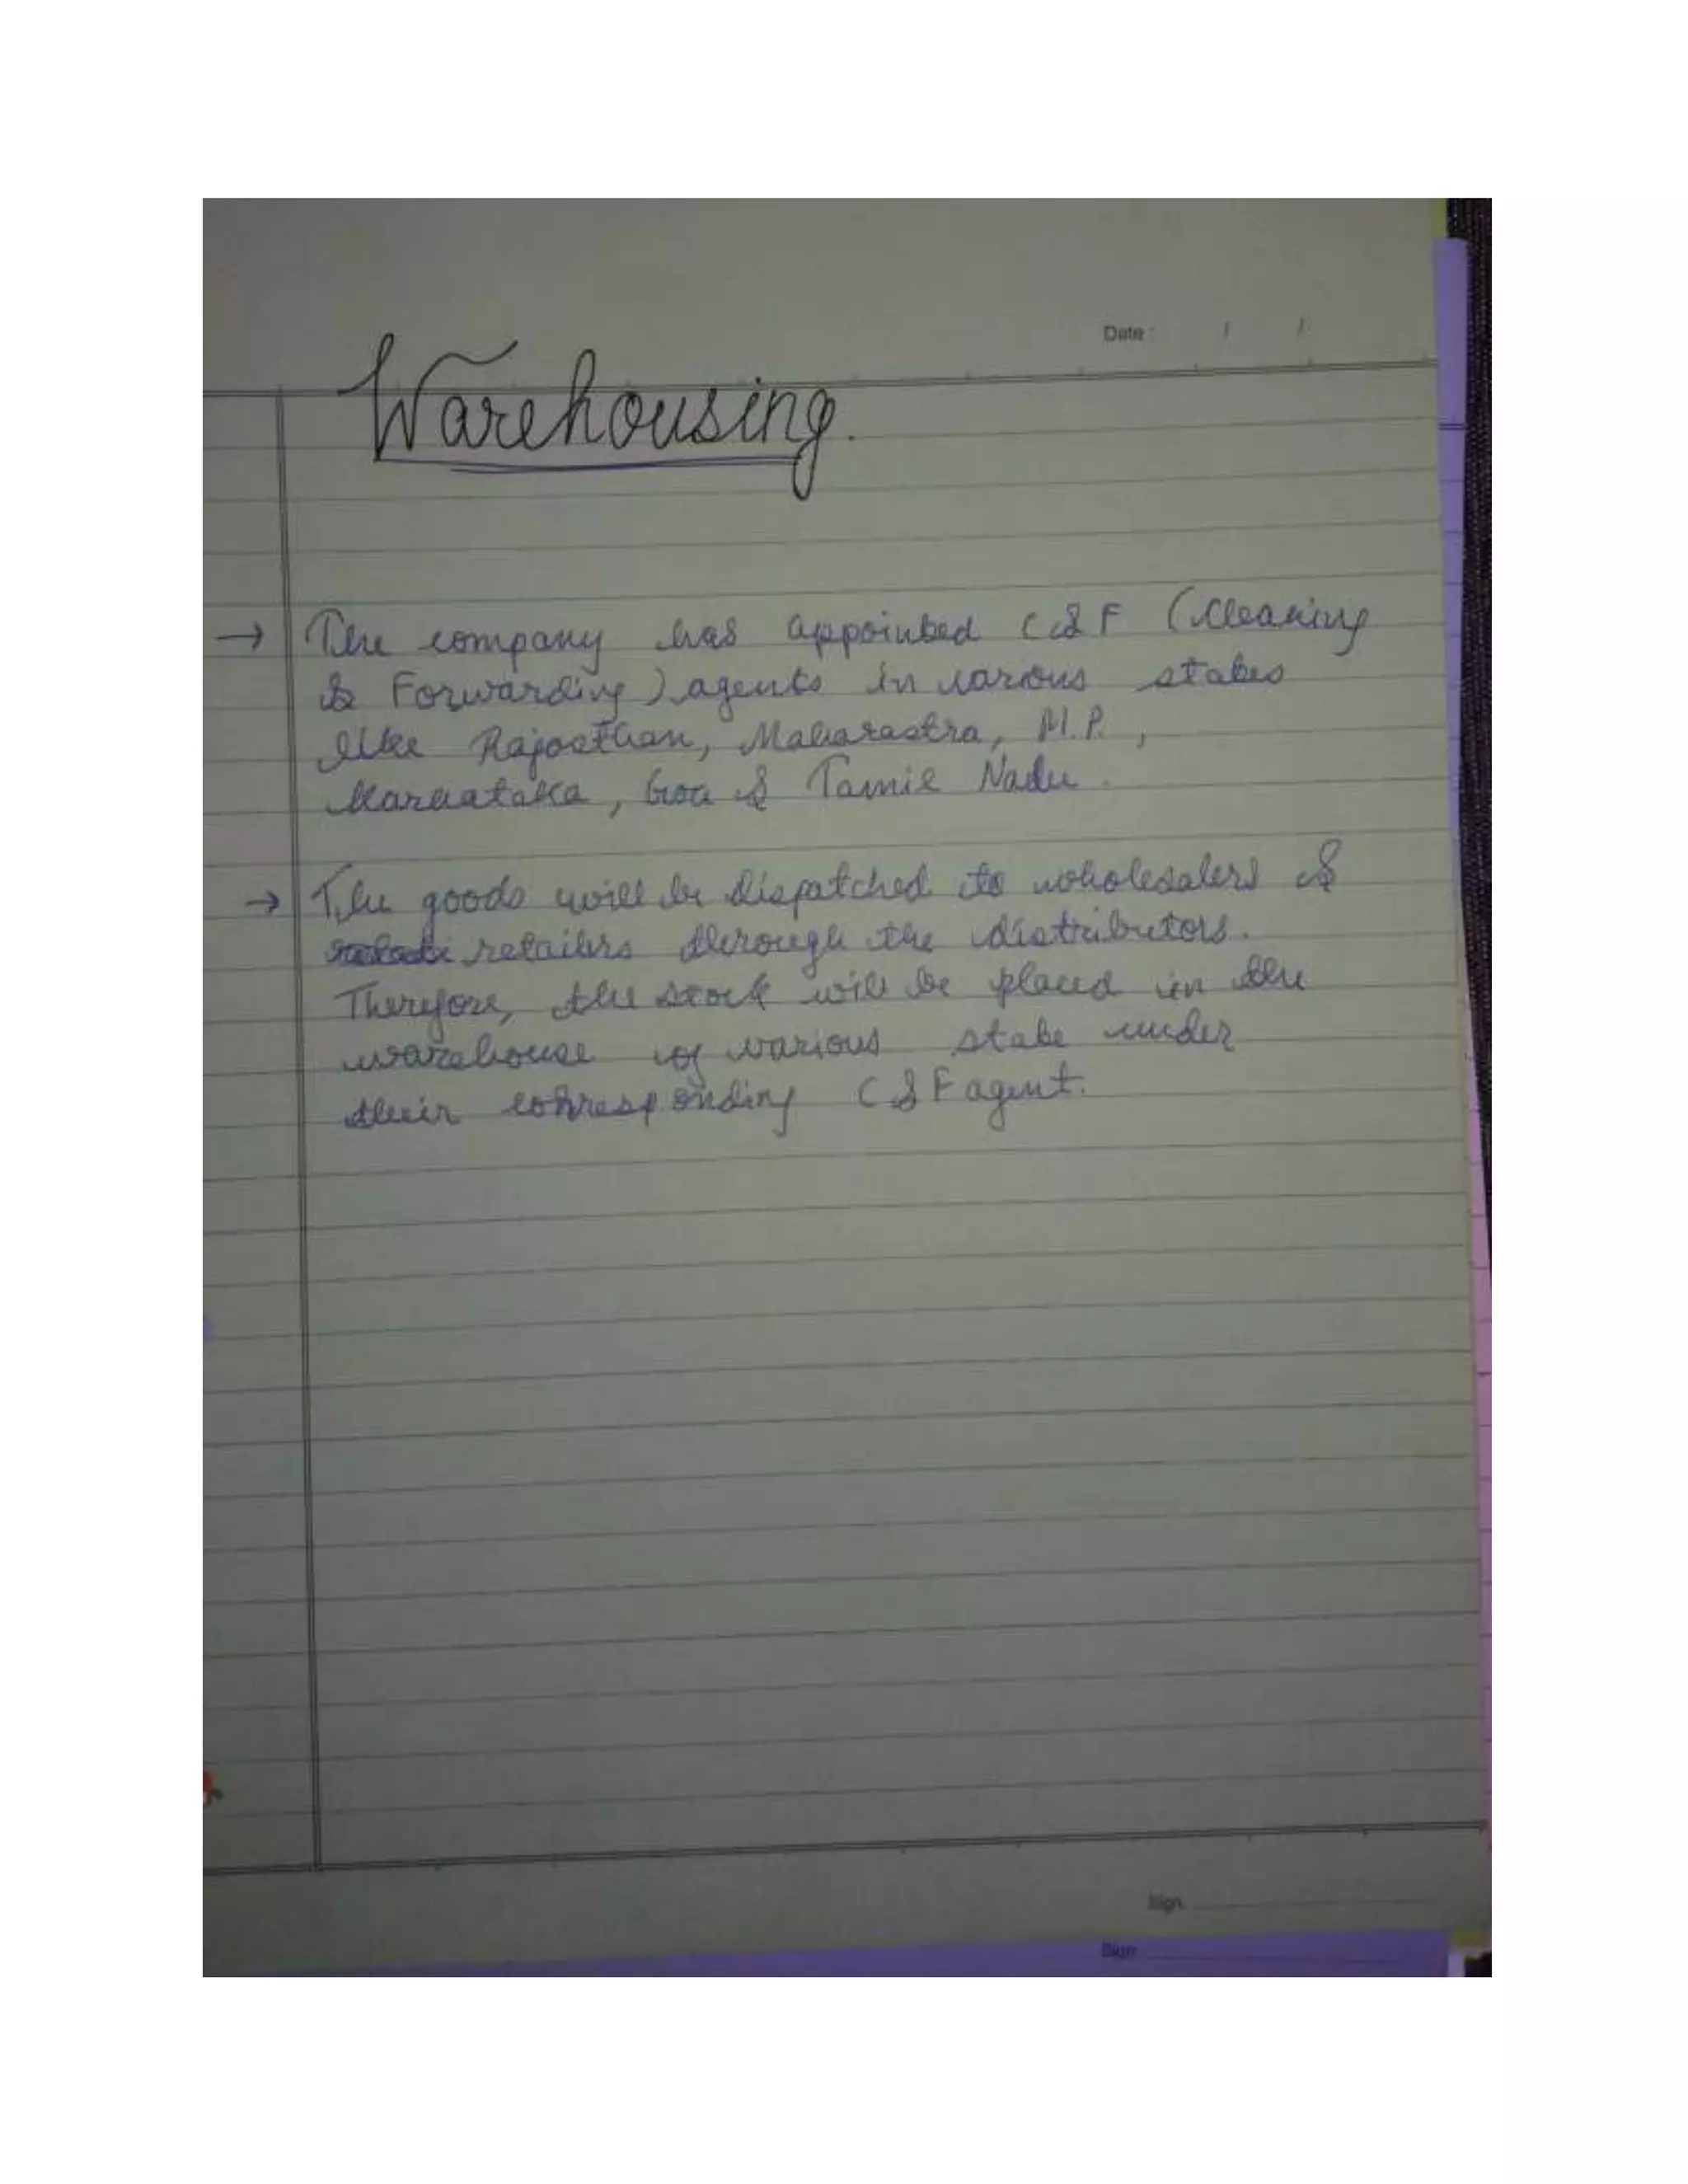 Date : / /
Warehousing.
→ The company has appointed C & F (Clearing
& Forwarding) agents in various states
like Rajasthan, Maharastra, M.P.,
Karnataka, Goa & Tamil Nadu.
→ The goods will be dispatched to wholesalers &
retailers through the distributors.
Therefore, the stock will be placed in the
warehouse of various state under
their corresponding C & F agent.
Sign
Sign